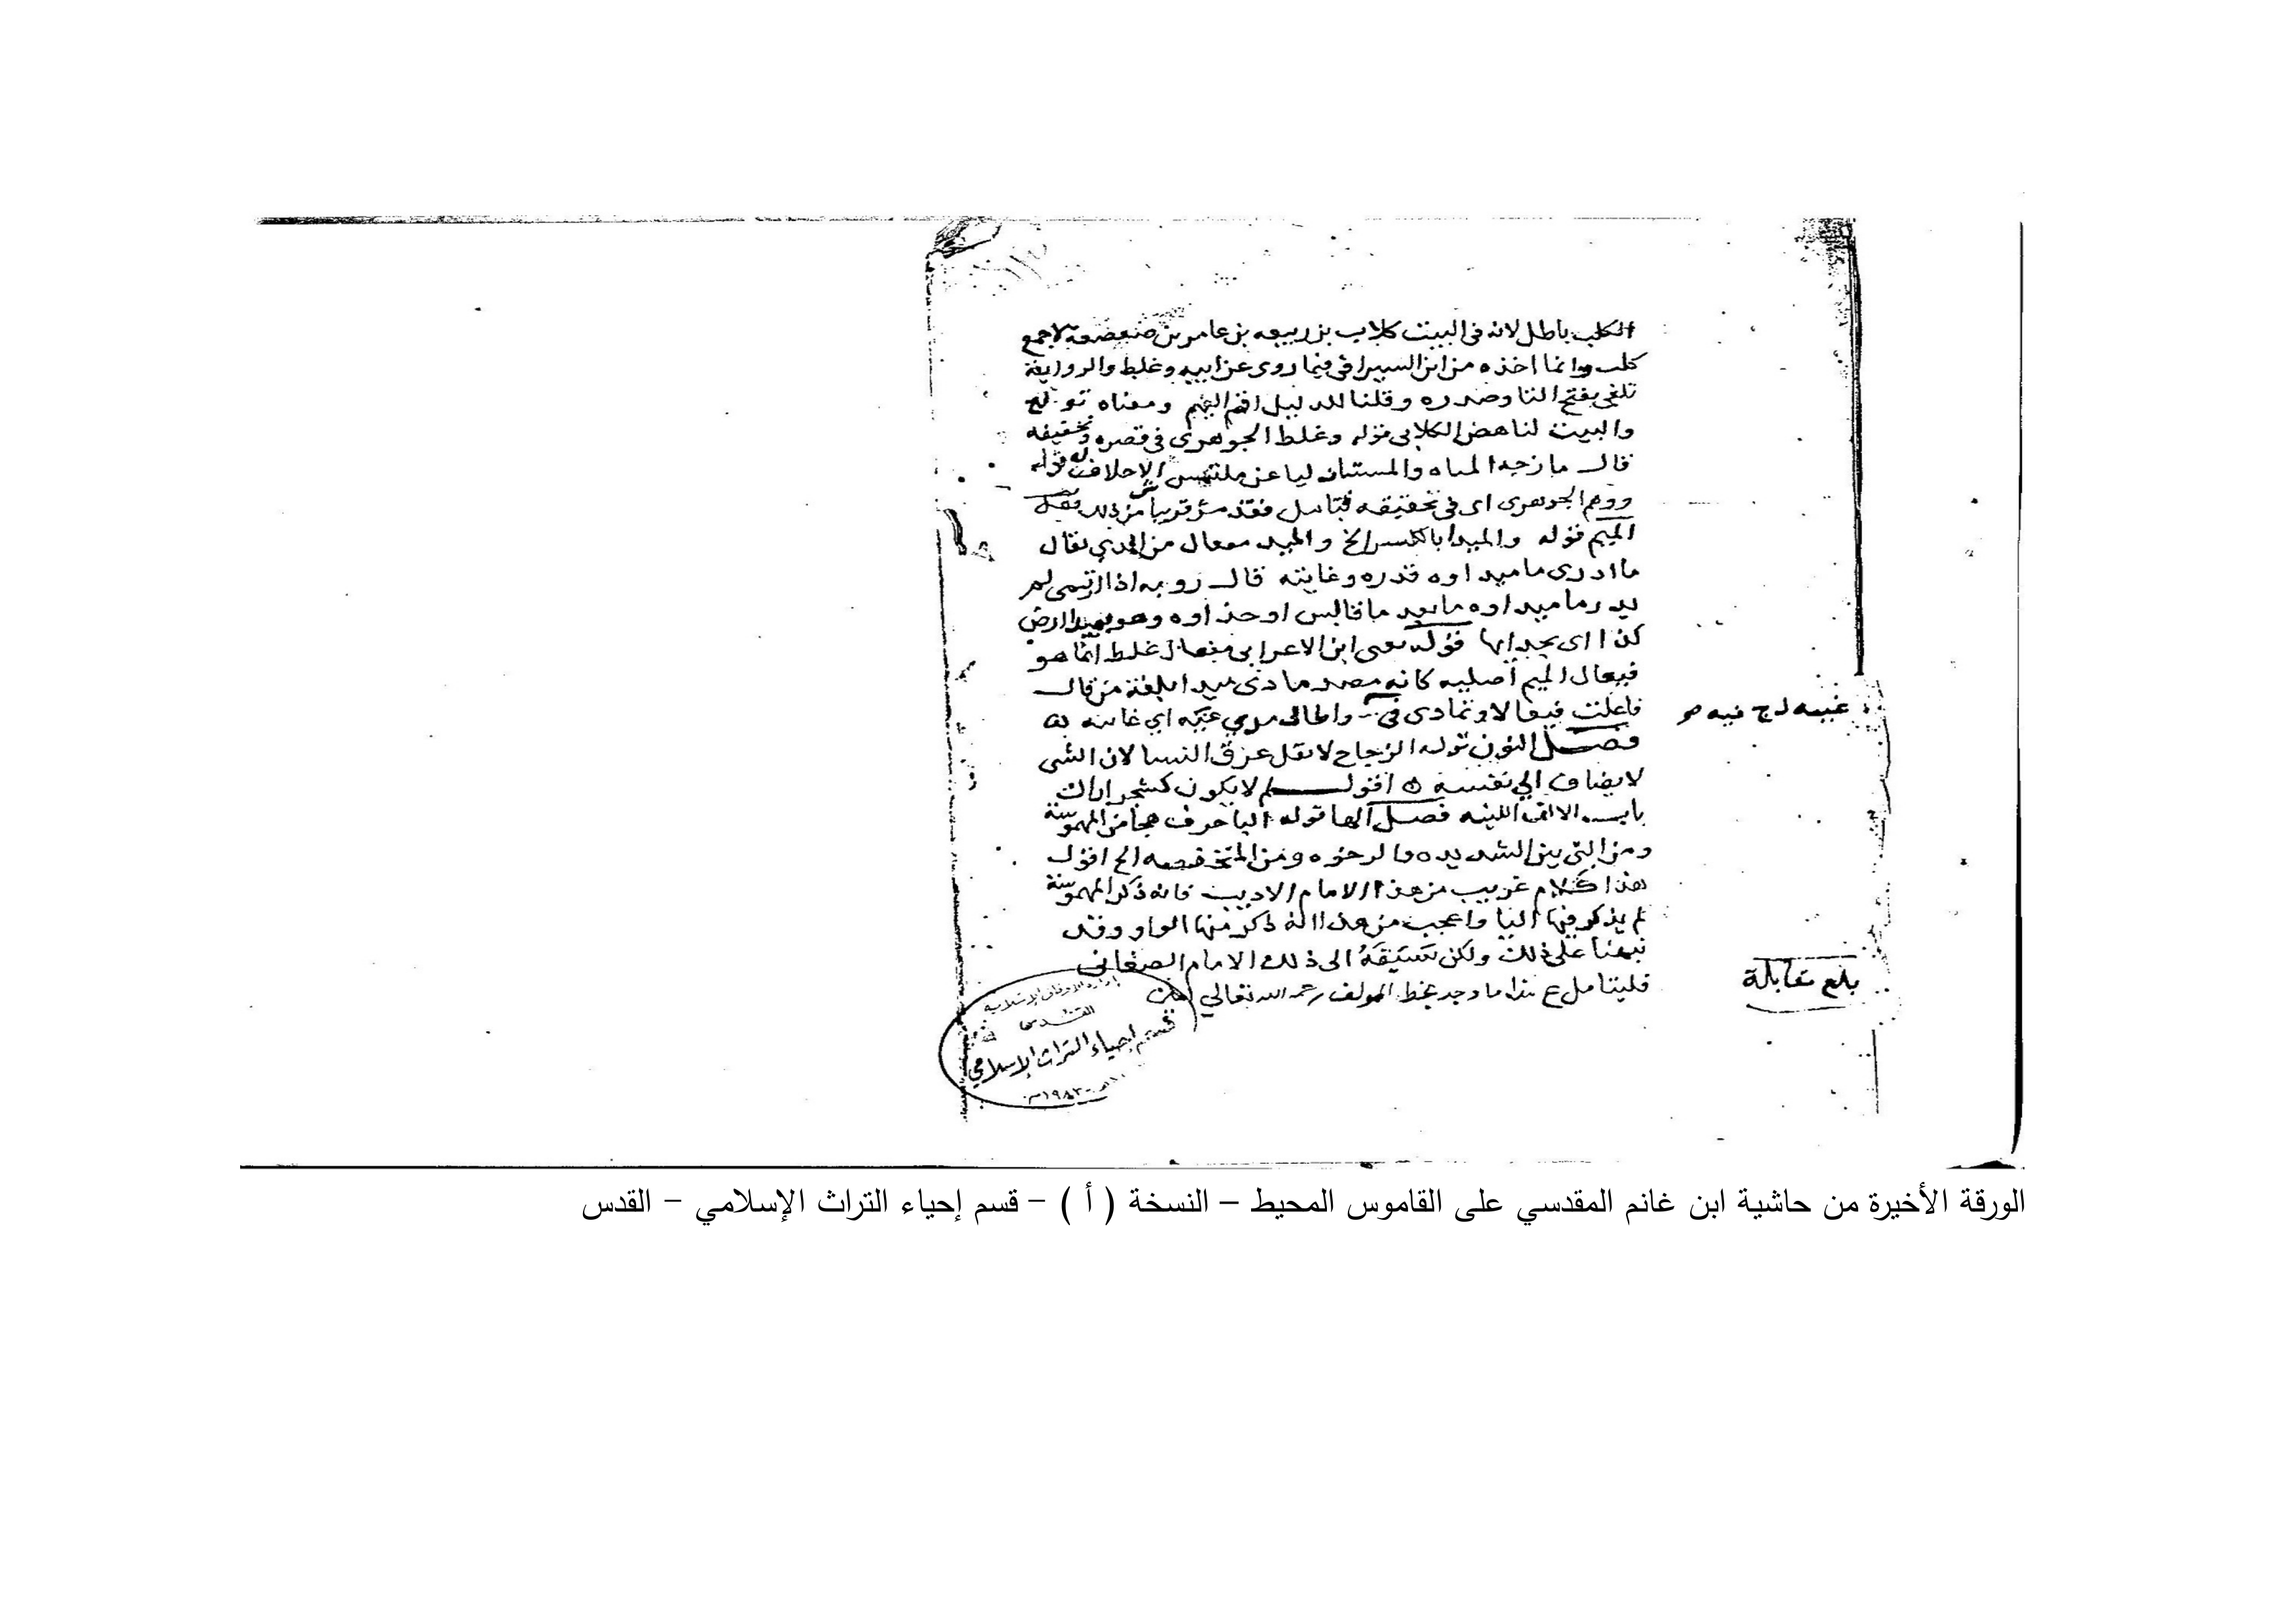 الكلب باطل لانه فى البيت كلاب بن ربيعه بن عامر بن صعصعه لاجمع
كلب وانما اخذه من ابن السيرافى فيما روى عن ابيه وغلط والرواية
تلغى بفتح التا وصدره وقلنا للدليل اقم اليهم ومعناه تولع
والبيت لناهض الكلابى قوله وغلط الجوهرى فى قصره وتخفيفه
قال ما زجه المياه والمستنان ليا عن ملتمس الاحلاف قوله
ووهم الجوهرى اى فى تخفيفه فتامل فقد مر قريبا من ذلك فصل
الميم قوله والميدا بالكسر الخ والميد مفعال من المدي يقال
ما ادرى ما ميداوه قدره وغايته قال روبه اذا ارتمى لم
يدر ما ميداوه ما يعد ما قاليس او حذاوه وهو بميدا ارض
كذا اى بحدايها قوله معنى ابن الاعرابى مفعال غلط انما هو
فيعال الميم اصليه كانه مصدر مادى ميدا بلغة من قال
فاعلت فيعالا وتمادى فى واطال مدي غيه اي غايته
فصل النون قوله الزجاج لا تقل عرق النسا لان الشى
لا يضاف الى نفسه اقول لم لا يكون كشجر اراك
باب الالف اللينه فصل الها قوله اليا حرف هجا من المهموسة
ومن التى بين الشديده والرخوه ومن المنخفضه الخ اقول
هذا كلام غريب من هذا الامام الاديب فانه ذكر المهموسة
لم يذكر فيها اليا واعجب من هذا انه ذكر منها الواو وقد
نبهنا على ذلك ولكن سَبَقَهُ الى ذلك الامام الصغانى
فليتامل هذا ما وجد بخط المولف رحمه الله تعالي امين
بلغ مقابلة
إدارة الأوقاف الإسلامية
القدس
قسم إحياء التراث الإسلامي
الورقة الأخيرة من حاشية ابن غانم المقدسي على القاموس المحيط – النسخة ( أ ) – قسم إحياء التراث الإسلامي – القدس